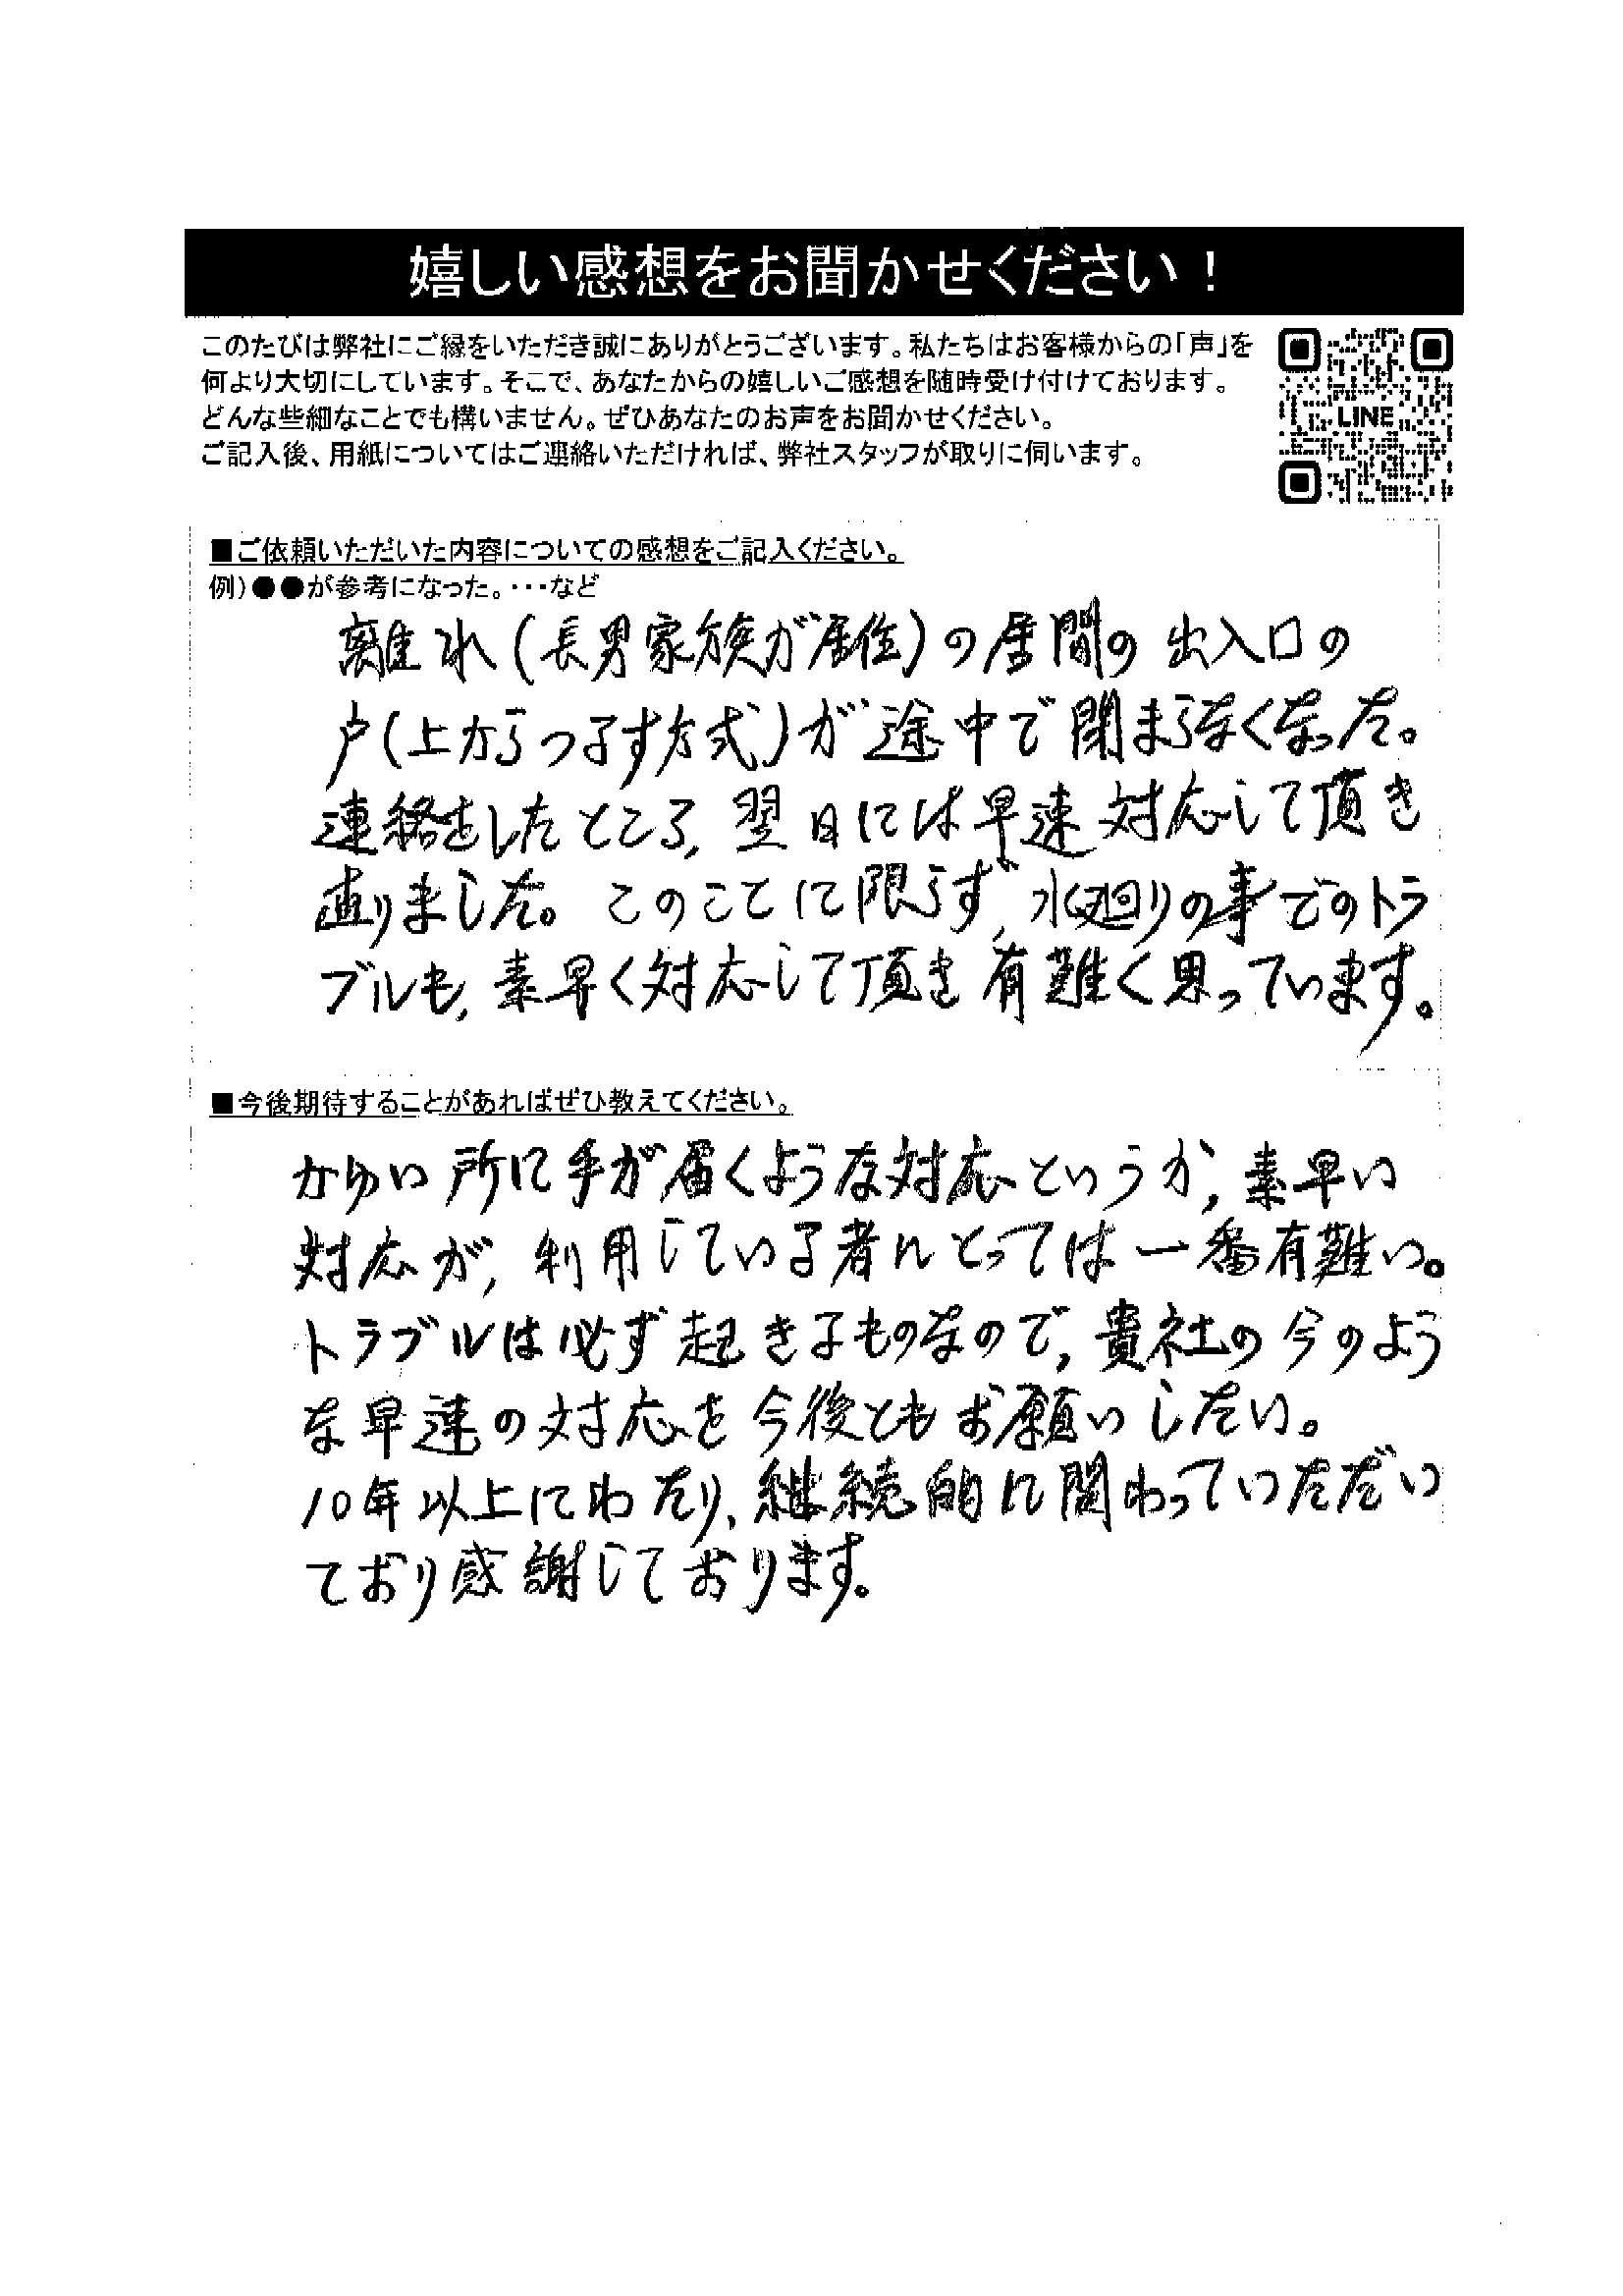 嬉しい感想をお聞かせください！
このたびは弊社にご縁をいただき誠にありがとうございます。私たちはお客様からの「声」を
何より大切にしています。そこで、あなたからの嬉しいご感想を随時受け付けております。
どんな些細なことでも構いません。ぜひあなたのお声をお聞かせください。
ご記入後、用紙についてはご連絡いただければ、弊社スタッフが取りに伺います。
LINE
■ご依頼いただいた内容についての感想をご記入ください。
例）●●が参考になった。・・・など
離れ（長男家族が居住）の居間の出入口の
戸（上からつるす方式）が途中で閉まらなくなった。
連絡をしたところ、翌日には早速対応して頂き
直りました。このことに限らず、水廻りの事でのトラ
ブルも、素早く対応して頂き有難く思っています。
■今後期待することがあればぜひ教えてください。
かゆい所に手が届くような対応というか、素早い
対応が、利用している者にとっては一番有難い。
トラブルは必ず起きるものなので、貴社の今のよう
な早速の対応を今後ともお願いしたい。
10年以上にわたり、継続的に関わっていただい
ており感謝しております。